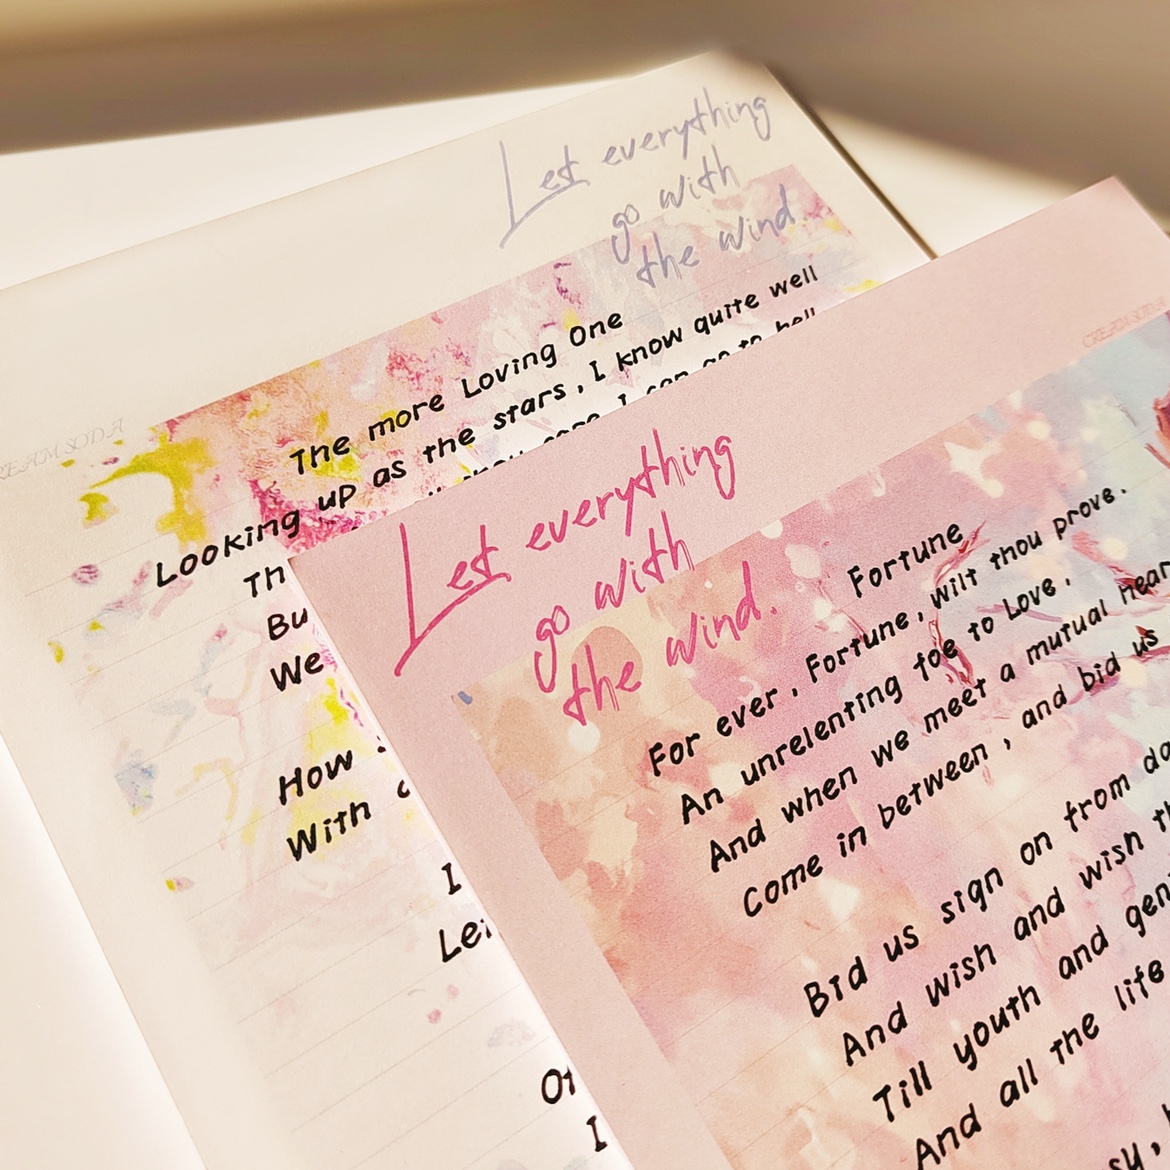 Let everything
go with
the wind.
CREAM SODA
The more Loving One
Looking up as the stars, I know quite well
I can go to hell
Th
But
We
How
With
I
Let
Of
I
CREAM SODA
Let everything
go with
the wind.
Fortune
For ever, Fortune, wilt thou prove.
An unrelenting foe to Love,
And when we meet a mutual hear
Come in between, and bid us
Bid us sign on from da
And wish and wish th
Till youth and gen
And all the life